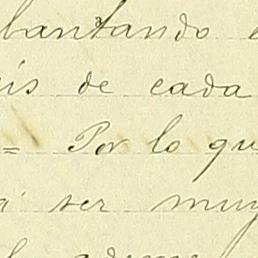 bantando
is de cada
= Por lo qu
a ser muy